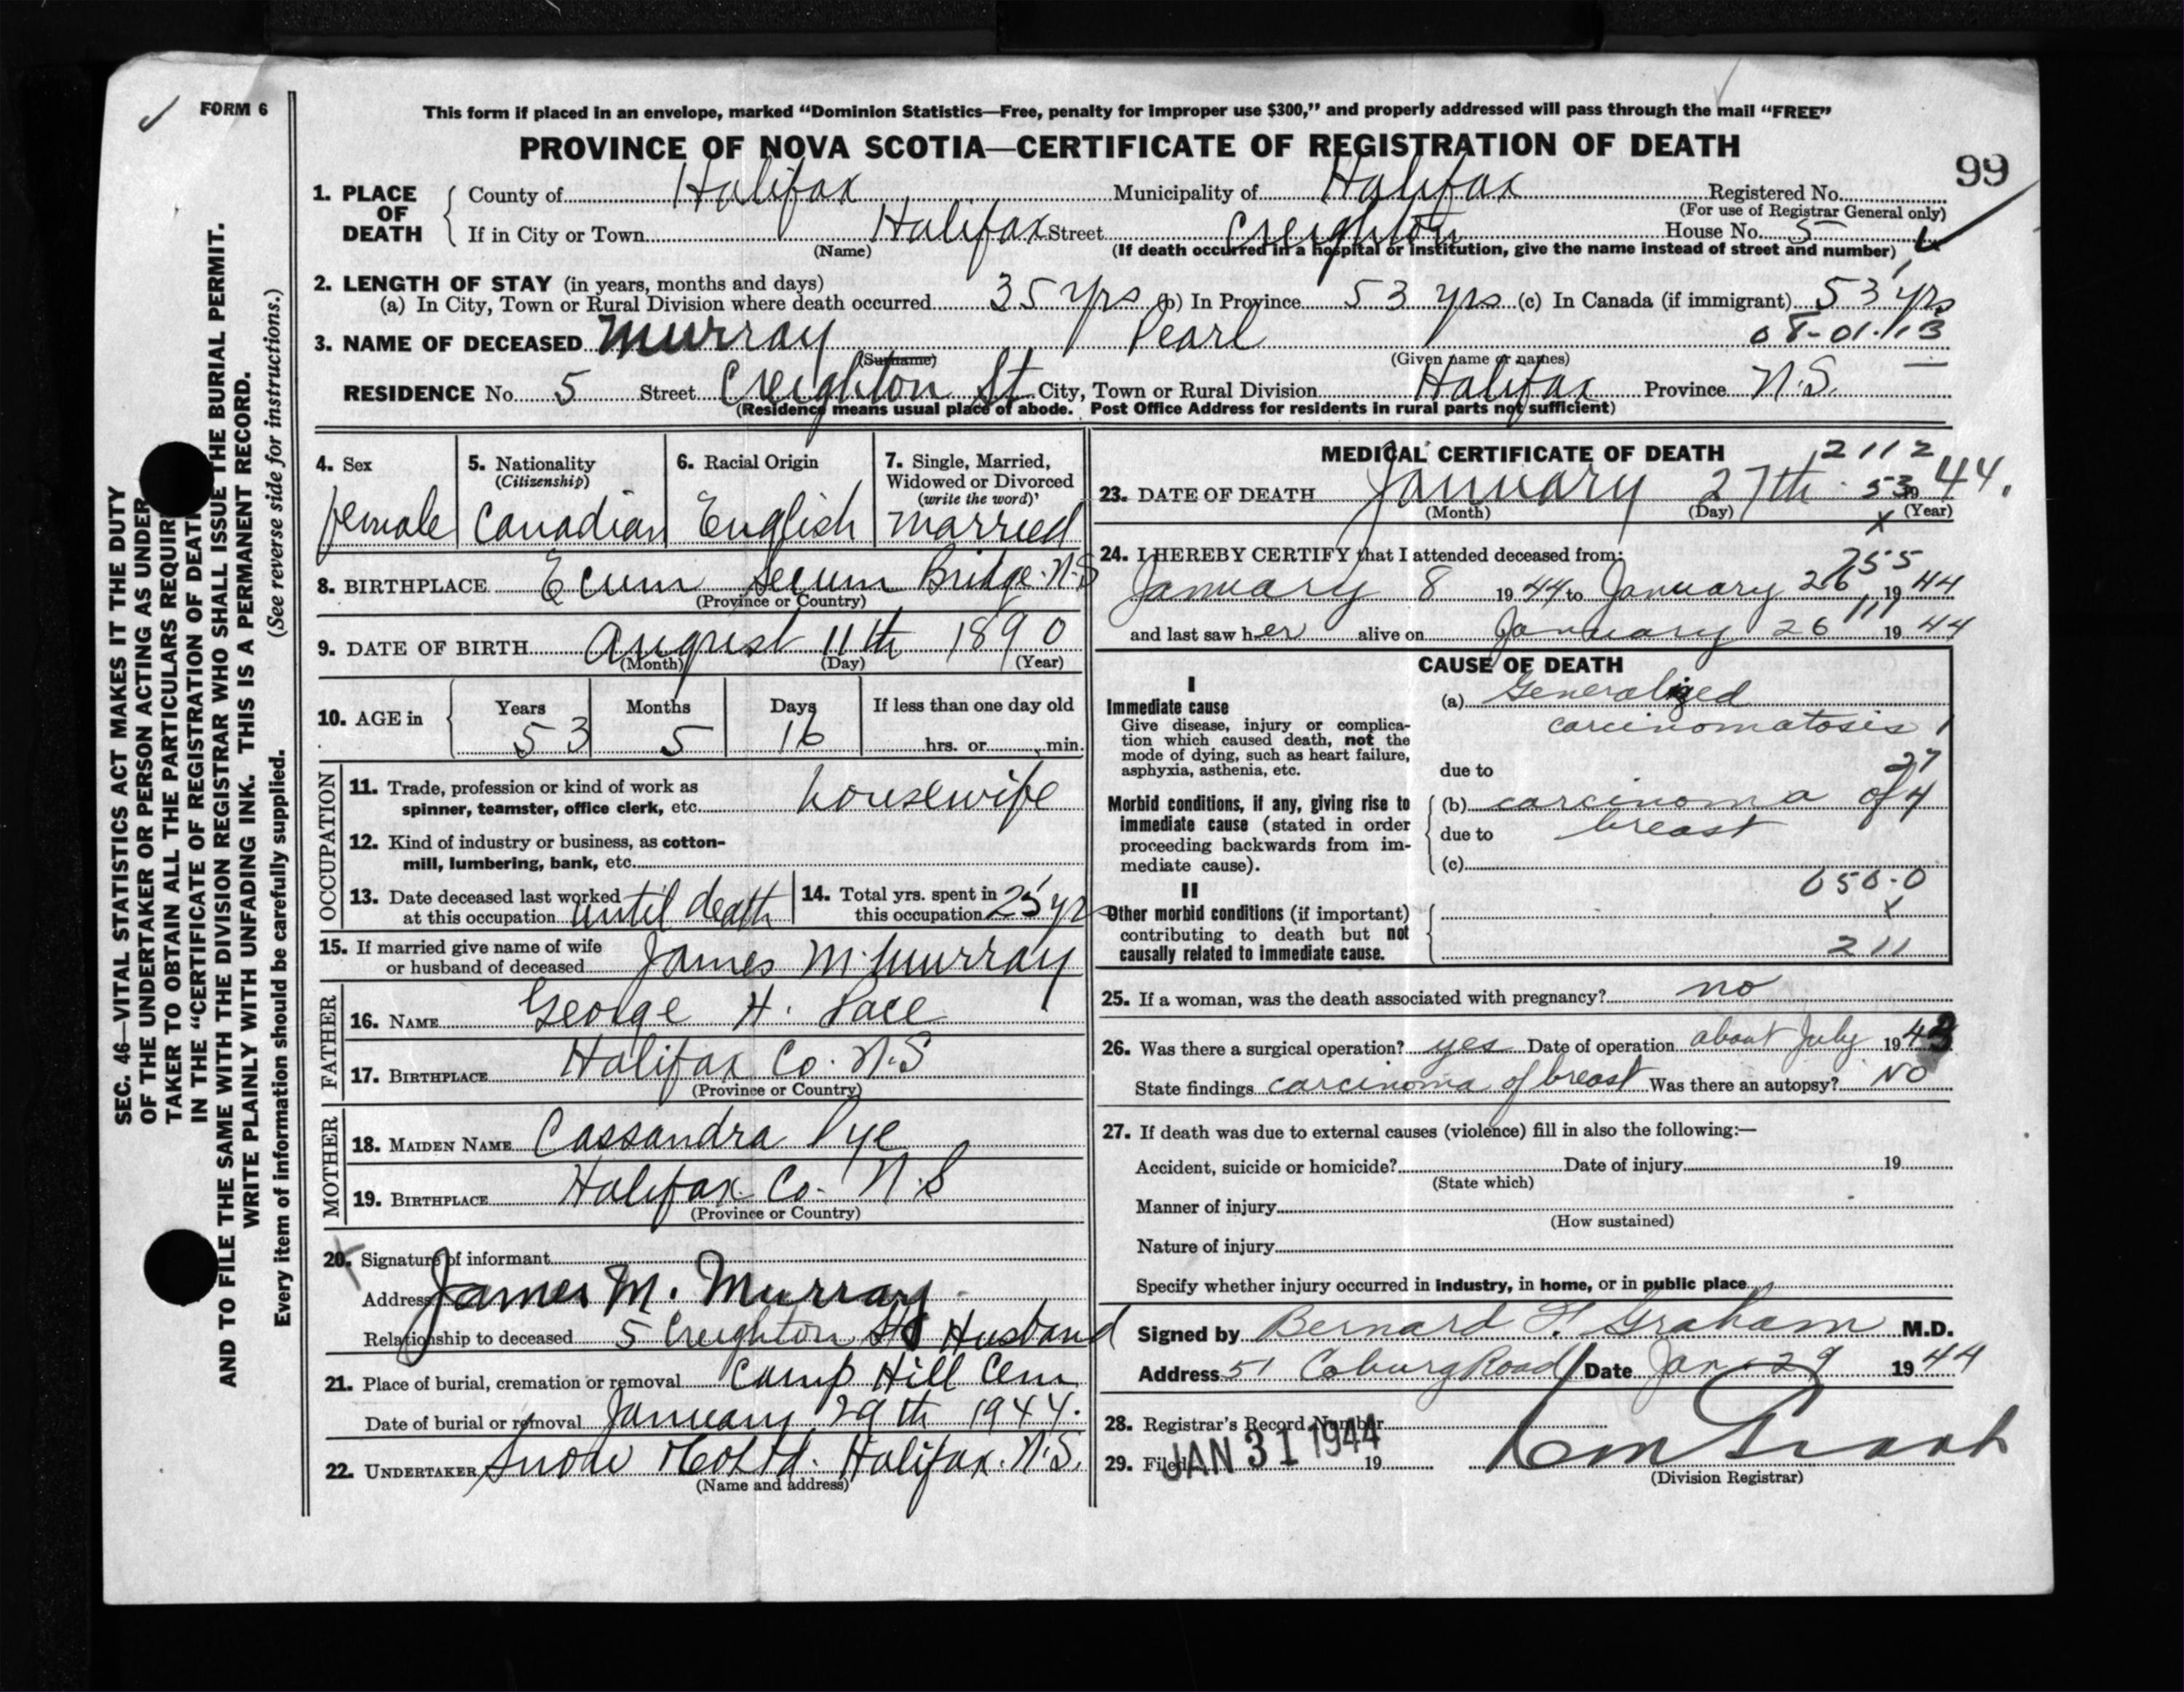 FORM 6
This form if placed in an envelope, marked “Dominion Statistics—Free, penalty for improper use $300,” and properly addressed will pass through the mail “FREE”
PROVINCE OF NOVA SCOTIA—CERTIFICATE OF REGISTRATION OF DEATH
99
1. PLACE OF DEATH { County of Halifax Municipality of Halifax Registered No.
(For use of Registrar General only)
If in City or Town Halifax Street Creighton House No. 5
(Name) (If death occurred in a hospital or institution, give the name instead of street and number)
2. LENGTH OF STAY (in years, months and days)
(a) In City, Town or Rural Division where death occurred 35 yrs (b) In Province 53 yrs (c) In Canada (if immigrant) 53 yrs
08-01-113
3. NAME OF DECEASED Murray Pearl
(Surname) (Given name or names)
RESIDENCE No. 5 Street Creighton St. City, Town or Rural Division Halifax Province N.S.
(Residence means usual place of abode. Post Office Address for residents in rural parts not sufficient)
4. Sex
female
5. Nationality
(Citizenship)
Canadian
6. Racial Origin
English
7. Single, Married,
Widowed or Divorced
(write the word)
married
8. BIRTHPLACE Ecum Secum Bridge. N.S
(Province or Country)
9. DATE OF BIRTH August 11th 1890
(Month) (Day) (Year)
10. AGE in { Years Months Days If less than one day old
53 5 16 hrs. or min.
OCCUPATION
11. Trade, profession or kind of work as
spinner, teamster, office clerk, etc. housewife
12. Kind of industry or business, as cotton-
mill, lumbering, bank, etc.
13. Date deceased last worked
at this occupation until death
14. Total yrs. spent in
this occupation 25 yrs
15. If married give name of wife
or husband of deceased James M. Murray
FATHER
16. NAME George H. Pace
17. BIRTHPLACE Halifax Co. N.S
(Province or Country)
MOTHER
18. MAIDEN NAME Cassandra Pye
19. BIRTHPLACE Halifax Co. N.S
(Province or Country)
20. Signature of informant
Address James M. Murray
Relationship to deceased 5 Creighton St Husband
21. Place of burial, cremation or removal Camp Hill Cem
Date of burial or removal January 29th 1944.
22. UNDERTAKER Snow & Co Ltd. Halifax. N.S.
(Name and address)
MEDICAL CERTIFICATE OF DEATH 2112
23. DATE OF DEATH January 27th 53 19 44.
(Month) (Day) (Year)
x
24. I HEREBY CERTIFY that I attended deceased from:
255
January 8 1944 to January 26 1944
111
and last saw her alive on January 26 1944
CAUSE OF DEATH
I
Immediate cause
Give disease, injury or complica-
tion which caused death, not the
mode of dying, such as heart failure,
asphyxia, asthenia, etc.
(a) Generalized
carcinomatosis 1
27
due to
Morbid conditions, if any, giving rise to
immediate cause (stated in order
proceeding backwards from im-
mediate cause).
(b) carcinoma of 4
due to breast
(c)
050-0
x
211
II
Other morbid conditions (if important)
contributing to death but not
causally related to immediate cause.
25. If a woman, was the death associated with pregnancy? no
26. Was there a surgical operation? yes Date of operation about July 1943
State findings carcinoma of breast Was there an autopsy? NO
27. If death was due to external causes (violence) fill in also the following:—
Accident, suicide or homicide? Date of injury 19
(State which)
Manner of injury
(How sustained)
Nature of injury
Specify whether injury occurred in industry, in home, or in public place
Signed by Bernard F. Graham M.D.
Address 51 Coburg Road Date Jan 29 1944
28. Registrar's Record Number
29. Filed JAN 31 1944 19
(Division Registrar)
SEC. 46—VITAL STATISTICS ACT MAKES IT THE DUTY
OF THE UNDERTAKER OR PERSON ACTING AS UNDER
TAKER TO OBTAIN ALL THE PARTICULARS REQUIR
IN THE “CERTIFICATE OF REGISTRATION OF DEATH
AND TO FILE THE SAME WITH THE DIVISION REGISTRAR WHO SHALL ISSUE THE BURIAL PERMIT.
WRITE PLAINLY WITH UNFADING INK. THIS IS A PERMANENT RECORD.
Every item of information should be carefully supplied. (See reverse side for instructions.)